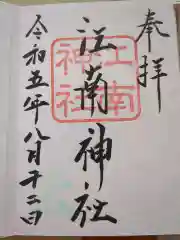 奉拝
江南神社
江南神社
令和五年八月十二日